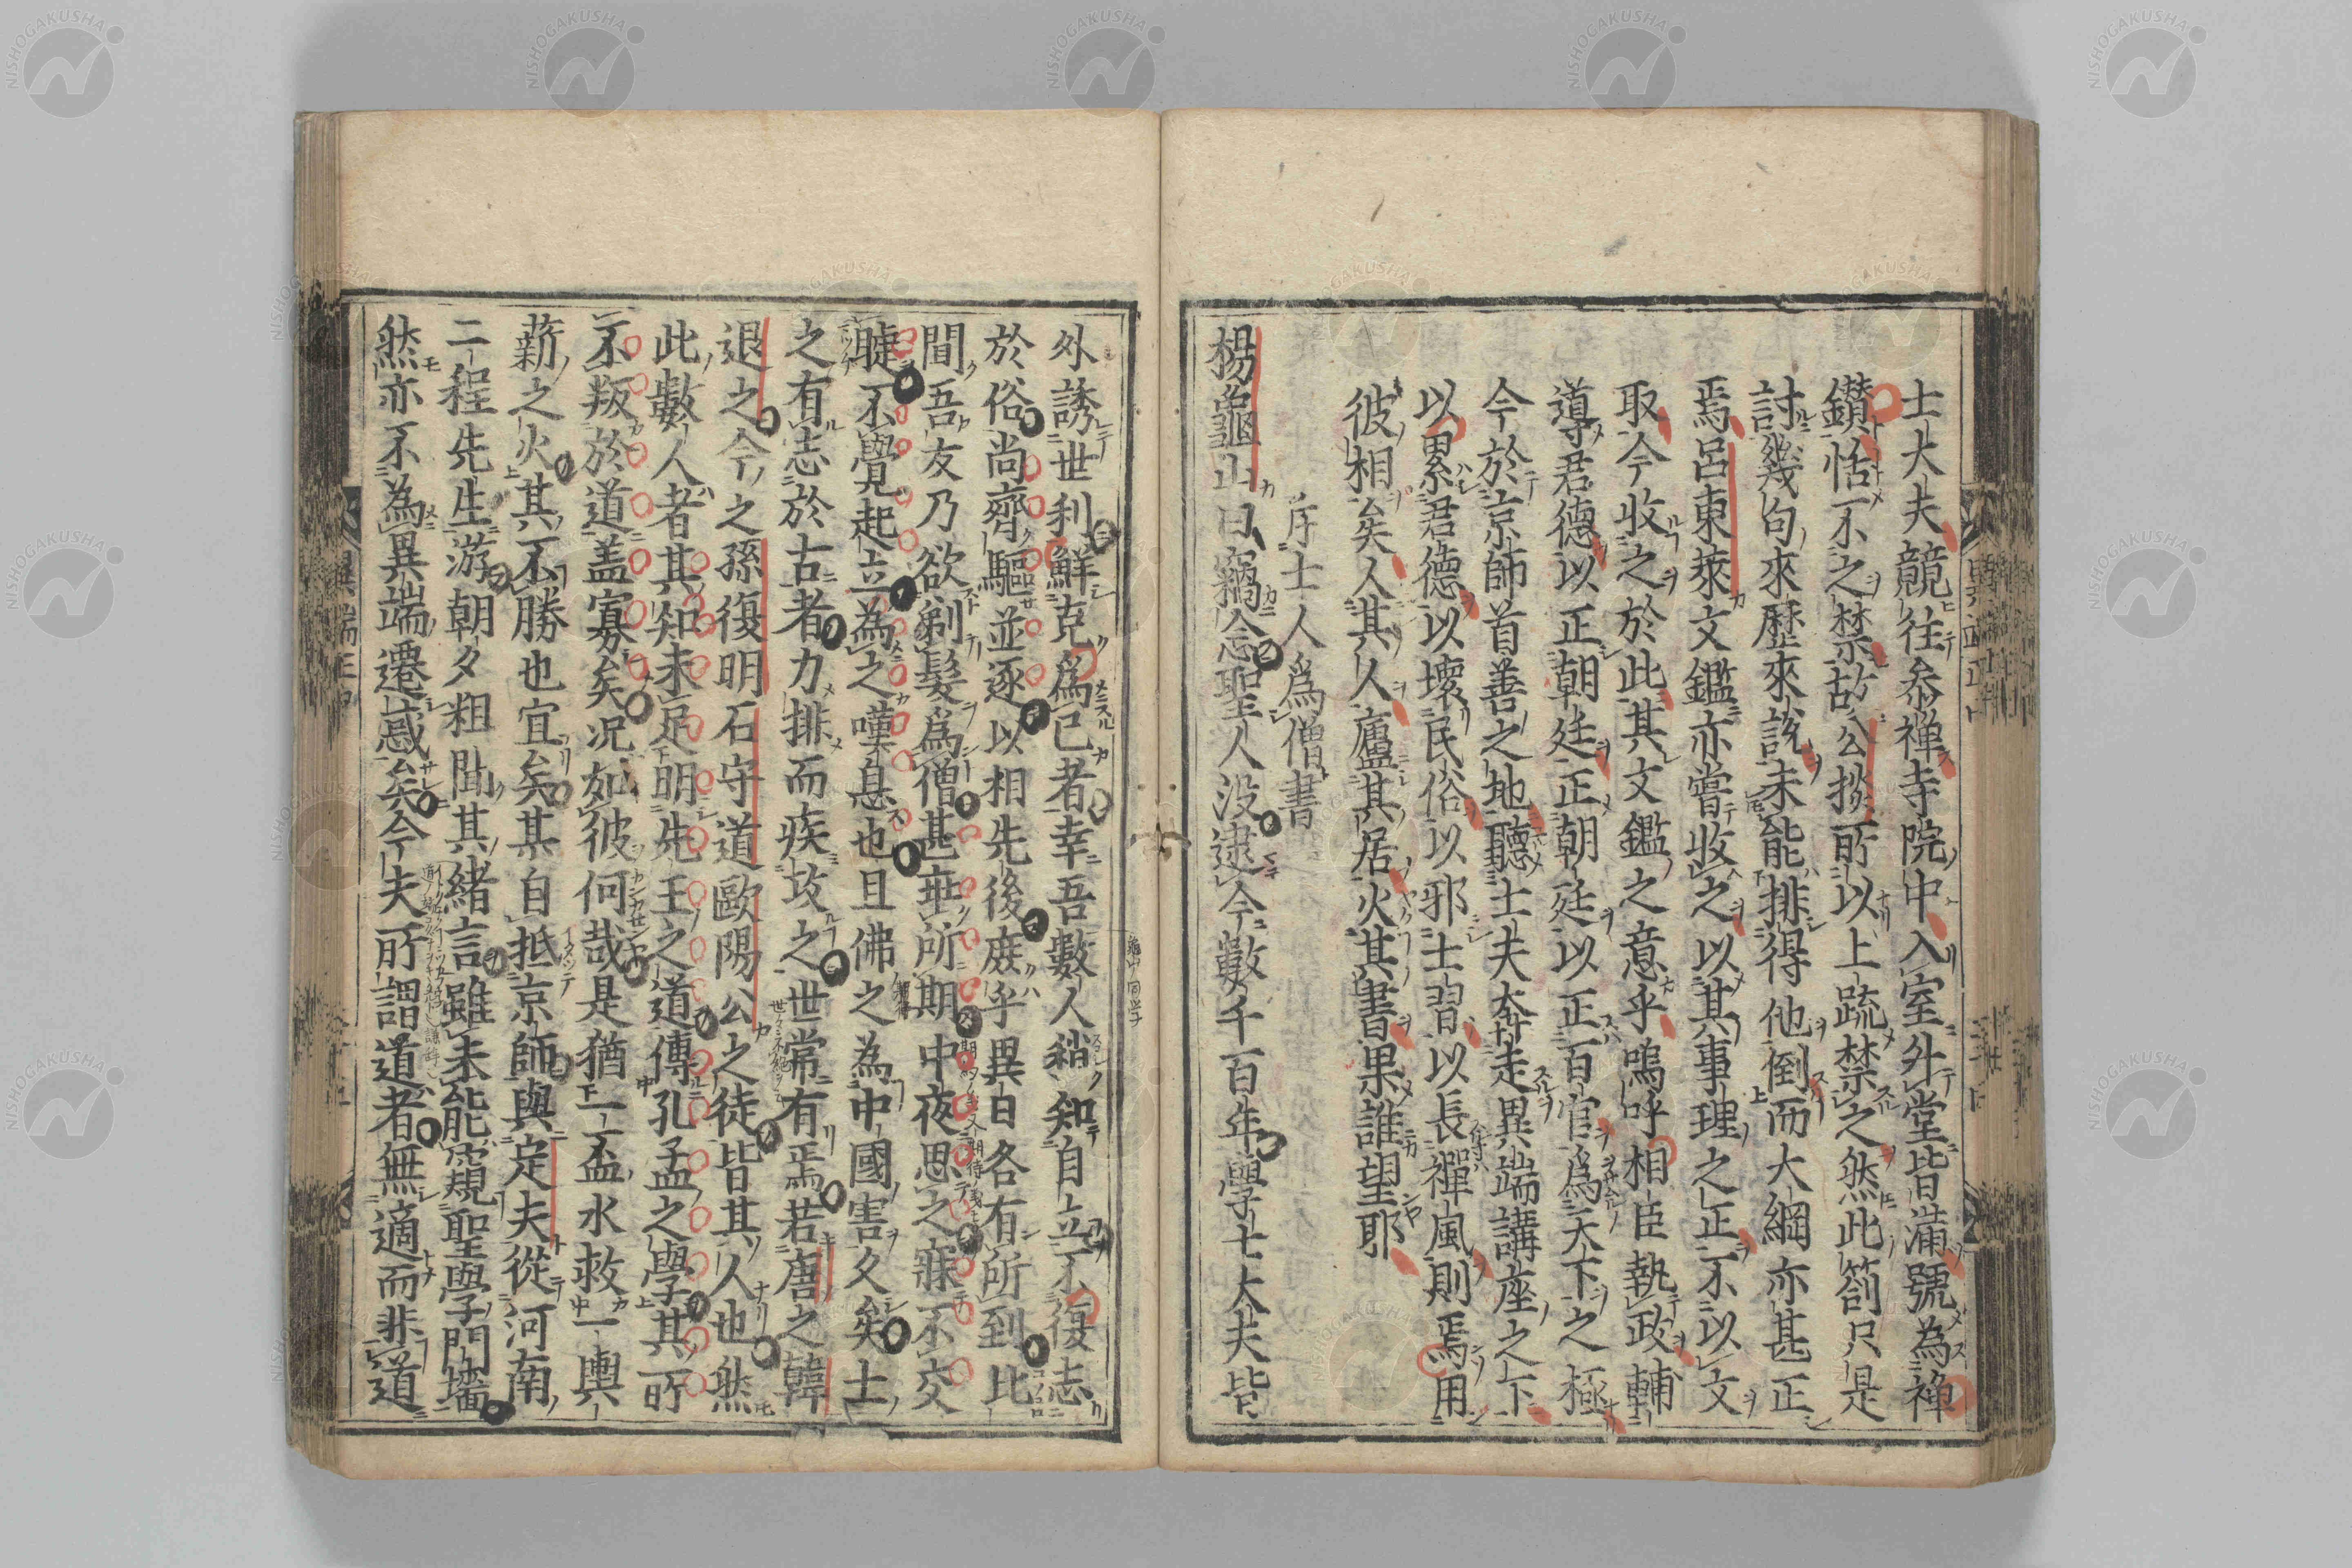 士大夫競往参禅寺院中入室外堂皆滿號為禅
鑚恬不之禁故公掞所以上疏禁之然此箚只是
討幾句來歷來說未能排得他倒而大綱亦甚正
焉呂東萊文鑑亦嘗收之以其事理之正不以文
取今收之於此其文鑑之意乎嗚呼相臣執政輔
導君德以正朝廷正朝廷以正百官爲天下之極
今於京師首善之地聽士夫奔走異端講座之下
以累君德以壞民俗以邪士習以長禪風則焉用
彼相矣人其人廬其居火其書果誰望耶
序士人爲僧書
楊龜山曰竊念聖人没逮今數千百年學士大夫皆
外誘世利鮮克爲己者幸吾數人稍知自立不復志
於俗尚齊驅並逐以相先後庻乎異日各有所到比
間吾友乃欲剃髮爲僧甚非所期中夜思之寐不交
睫不覺起立為之嘆息也且佛之為中國害久矣士
之有志於古者力排而疾攻之世常有焉若唐之韓
退之今之孫復明石守道歐陽公之徒皆其人也然
此數人者其知未足明先王之道傳孔孟之學其所
不叛於道盖寡矣况如彼何哉是猶一盃水救一輿
薪之火其不勝也宜矣某自抵京師與定夫從河南
二程先生游朝夕粗聞其緒言雖未能窺聖學門墻
然亦不為異端遷惑矣今夫所謂道者無適而非道